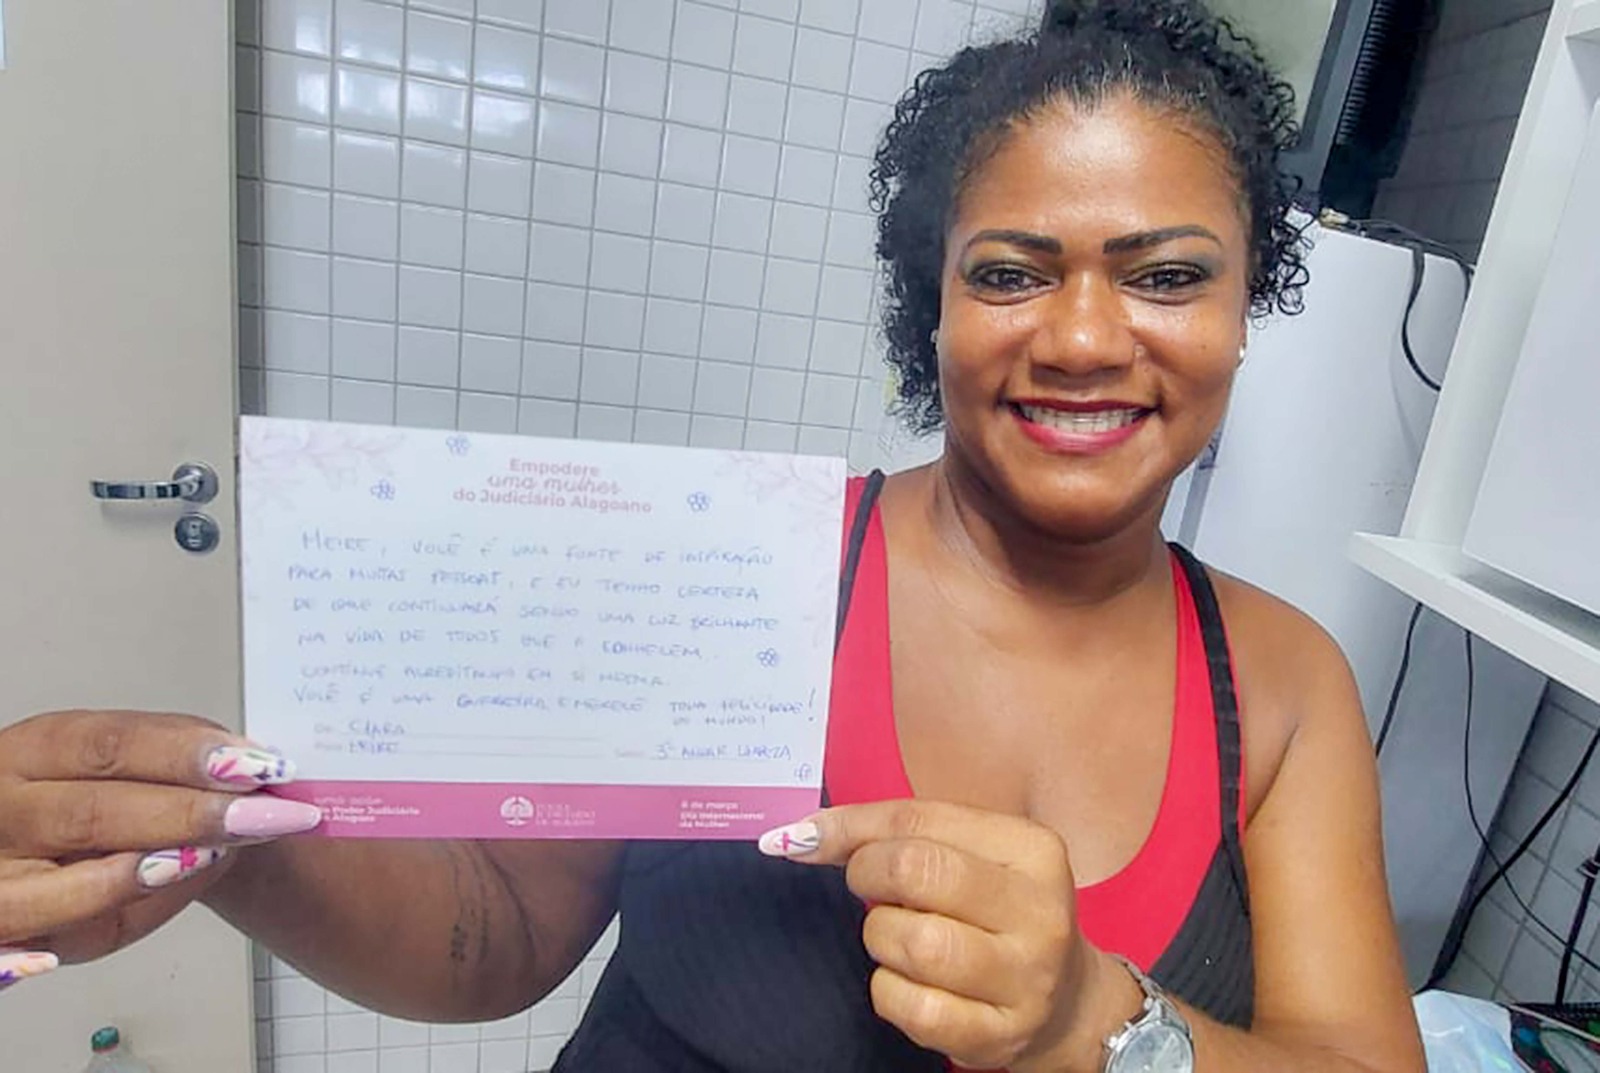 Empodere
uma mulher
do Judiciário Alagoano
MEIRE, VOCÊ É UMA FONTE DE INSPIRAÇÃO
PARA MUITAS PESSOAS, E EU TENHO CERTEZA
DE QUE CONTINUARÁ SENDO UMA LUZ BRILHANTE
NA VIDA DE TODOS QUE A CONHECEM.
CONTINUE ACREDITANDO EM SI MESMA.
VOCÊ É UMA GUERREIRA E MERECE TODA FELICIDADE
DO MUNDO!
De: CLARA
Para: MEIRE 3º ANDAR
uma ação
do Poder Judiciário
de Alagoas
PODER
JUDICIÁRIO
DE ALAGOAS
8 de março
Dia Internacional
da Mulher